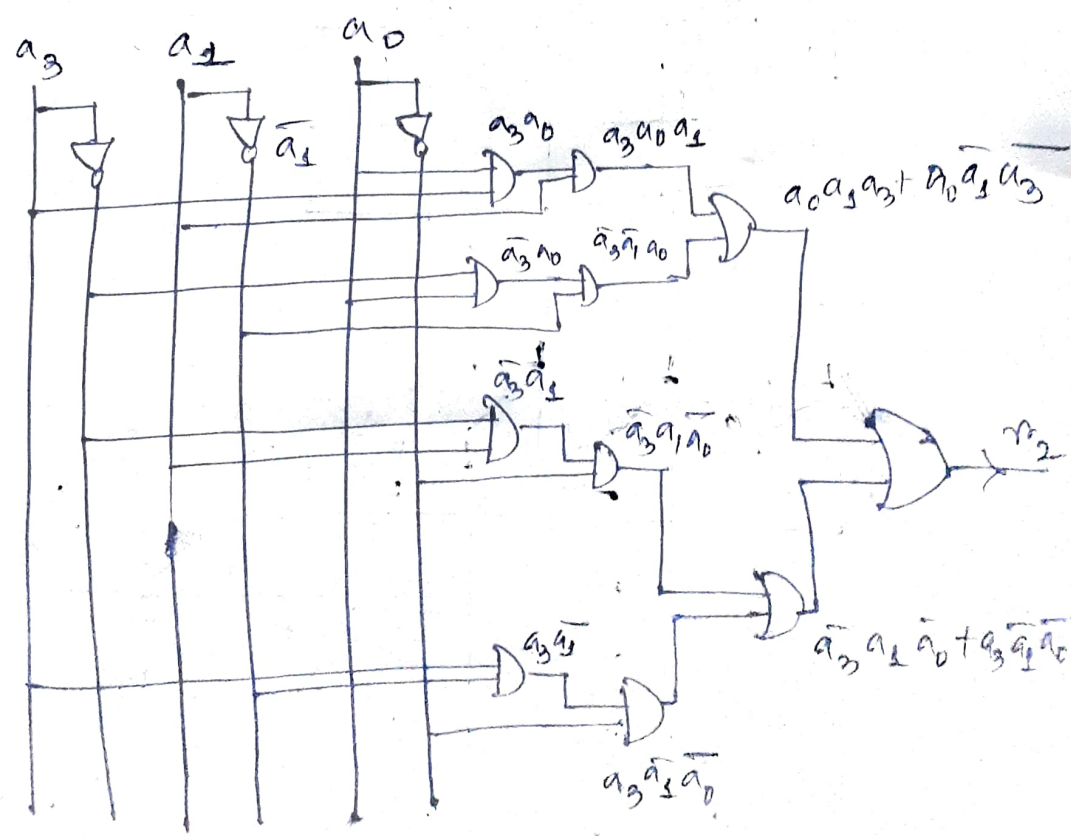 a₃ a₁ a₀
a̅₁
a₃a₀ a₃a₀a₁
a₀a₁a₃ + a₀a̅₁a̅₃
a̅₃a₀ a̅₃a̅₁a₀
a̅₃a̅₁
a̅₃a₁a̅₀
r₂
a₃a̅₁
a̅₃a₁a̅₀ + a₃a̅₁a̅₀
a₃a̅₁a̅₀